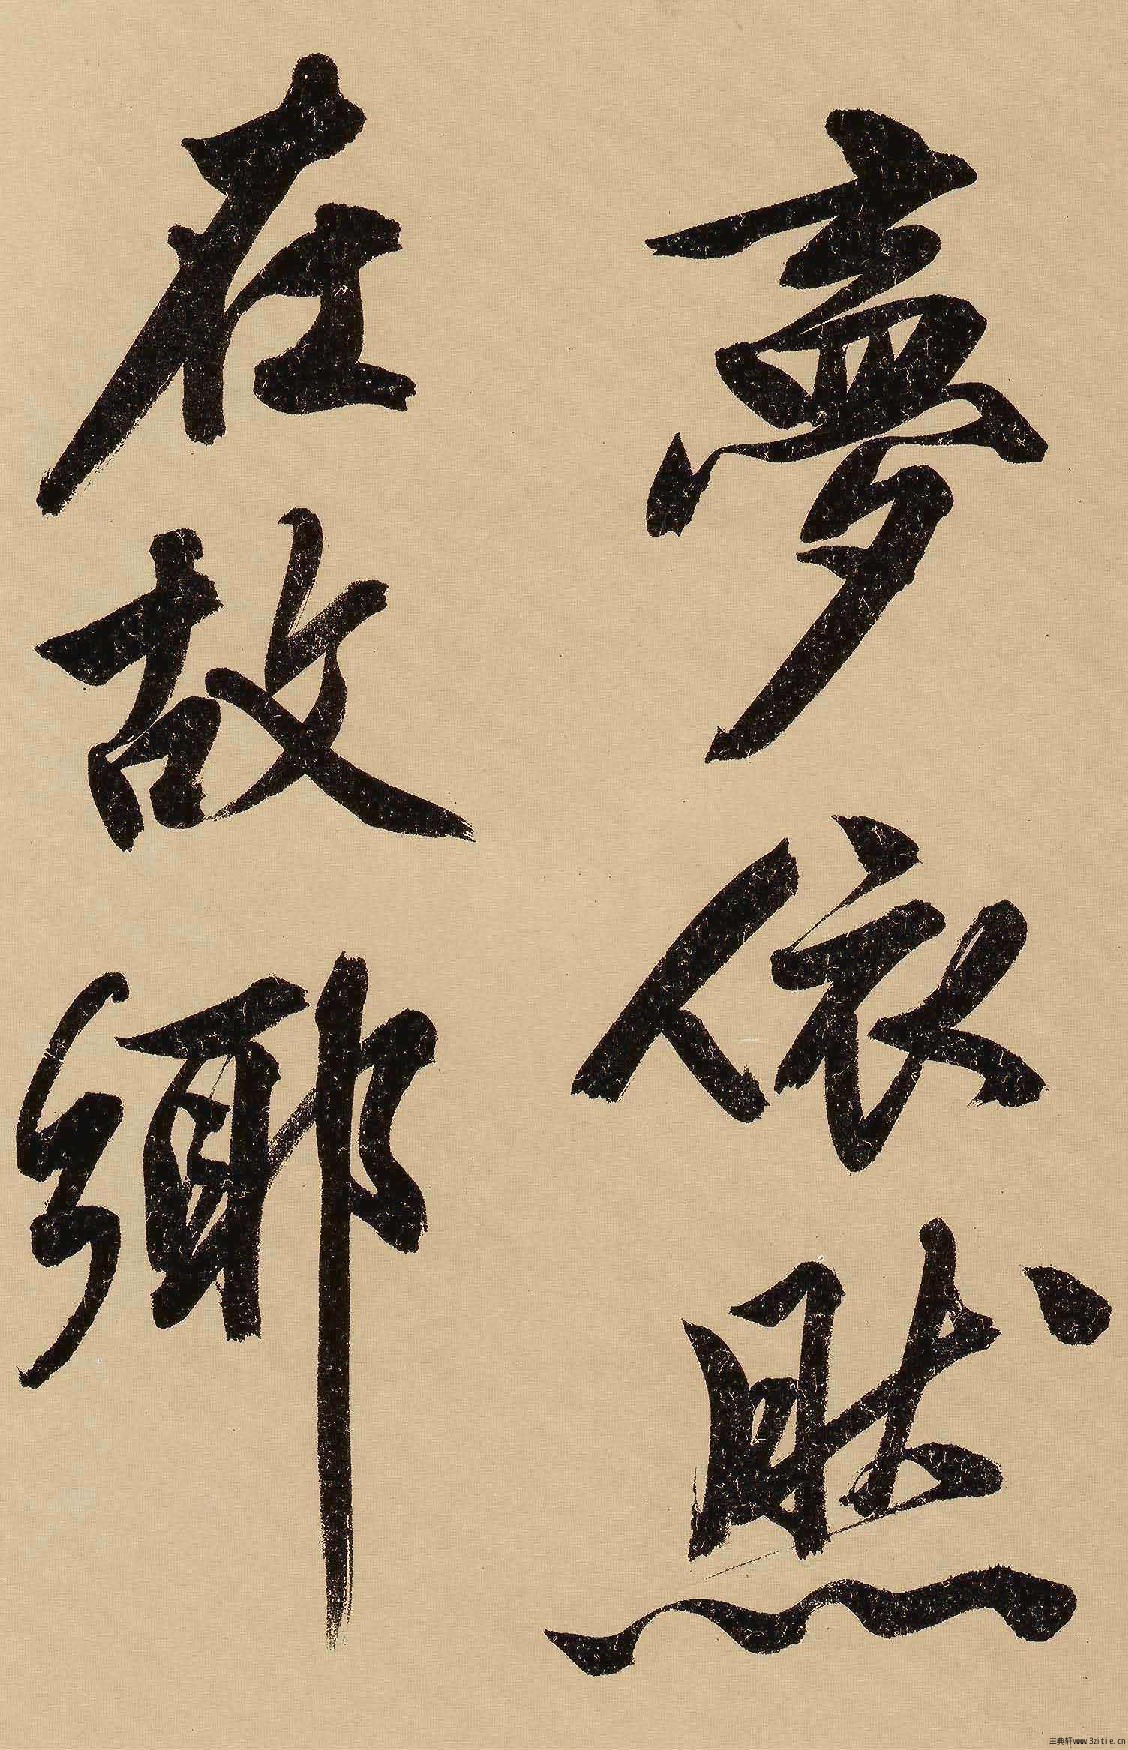 夢依然
在故鄉
三典轩www.3zitie.cn